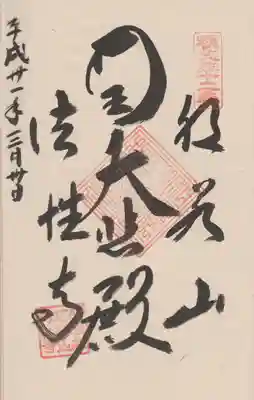 般若山
大悲殿
法性寺
平成廿一年三月廿日